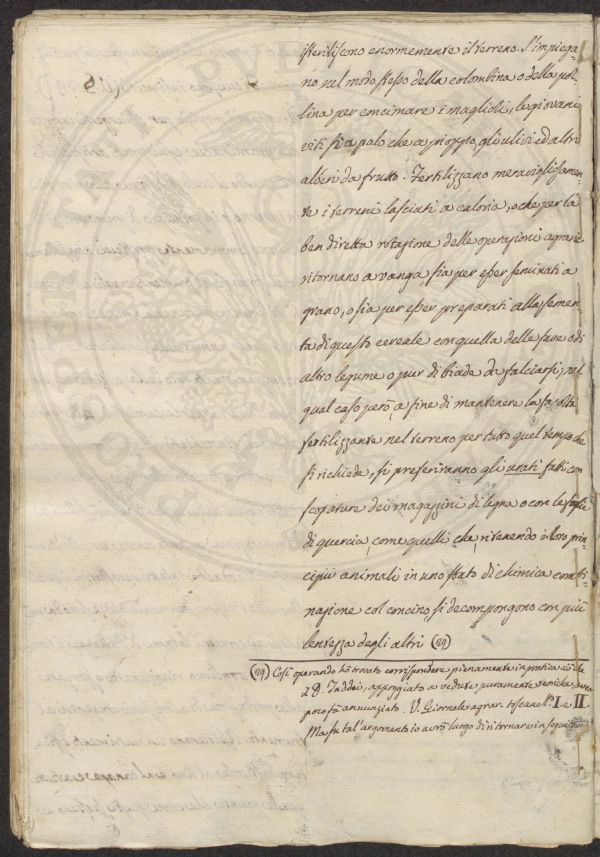 isteriliscono enormemente il terreno. S'impiega-
no nel modo stesso della colombina o della pol-
lina per concimare i maglioli, le giovani
viti sì a palo che a pioppo, gli ulivi ed altri
alberi da frutto. Fertilizzano meravigliosamen-
te i terreni lasciati a caloria, o che per la
ben diretta rotazione delle operazioni agrarie
ritornano a vanga, sia per esser sementati a
grano, o sia per esser preparati alla semen-
ta di questo cereale con quella delle fave o di
altro legume o pur di biade da falciarsi; nel
qual caso però, a fine di mantenere la facoltà
fertilizzante nel terreno per tutto quel tempo che
si richiede, si preferiranno gli urati fatti con
scopature dei magazzini di legna o con le foglie
di quercia, come quelli che, ritenendo i loro prin-
cipii animali in uno stato di chimica combi-
nazione col concino, si decompongono con più
lentezza degli altri (29)
(29) Così operando ho trovato corrispondere pienamente in pratica ciò che
il D. Taddei, appoggiato a vedute puramente teoriche, avea
poco fa annunziato. V. Giornale agrar. toscano N.i I e II.
Ma su tal'argomento io avrò luogo di ritornare in seguito.